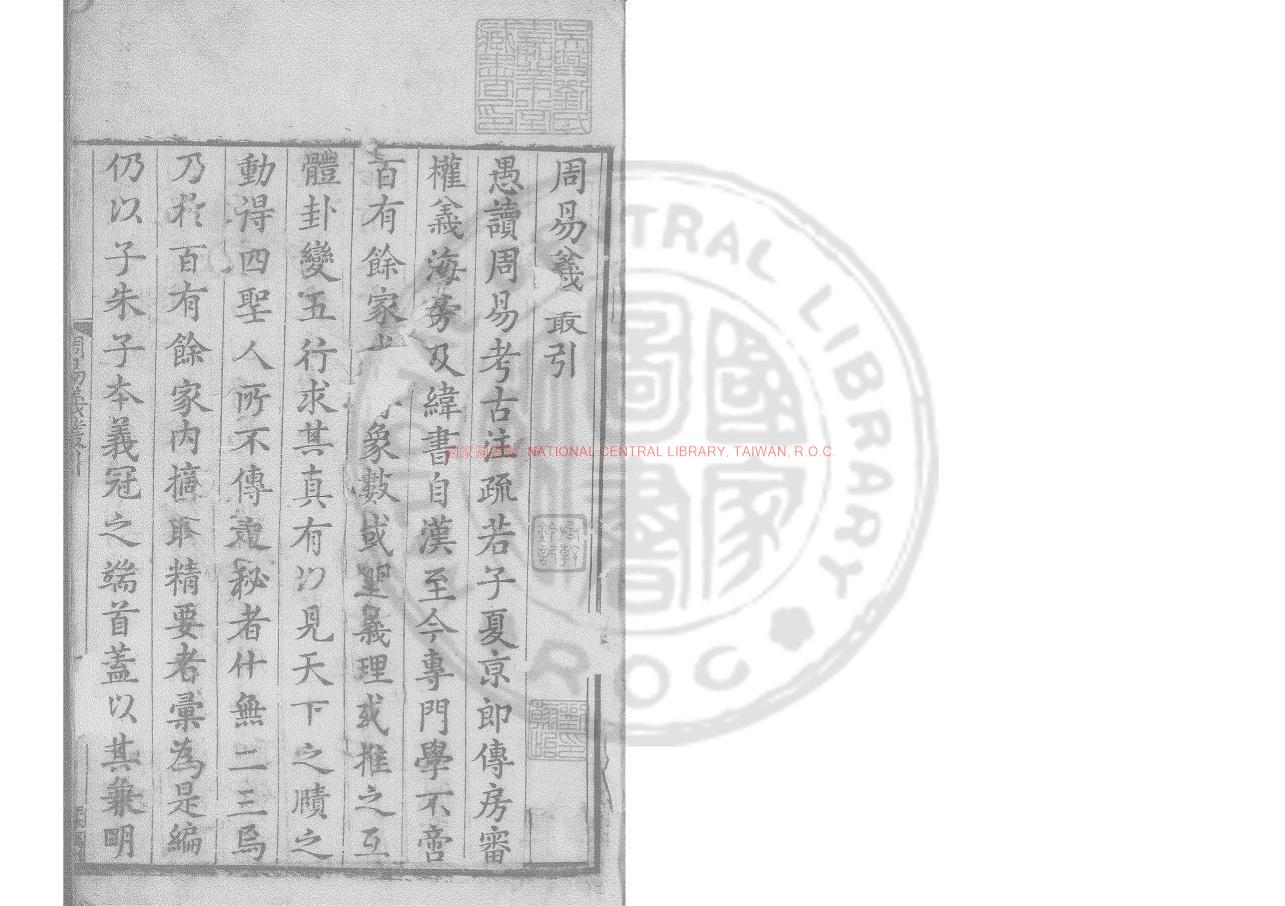 周易義叢引
愚讀周易考古注疏若子夏京郎傳房審
權義海旁及緯書自漢至今專門學不啻
百有餘家 象數或闡義理或推之互
體卦變五行求其真有以見天下之賾之
動得四聖人所不傳之秘者什無二三焉
乃於百有餘家內摘取精要者彙為是編
仍以子朱子本義冠之端首蓋以其兼明
周易義叢引
吳興劉氏嘉業堂藏書印
國家圖書館 NATIONAL CENTRAL LIBRARY, TAIWAN, R.O.C.
CENTRAL LIBRARY
R.O.C.
國家圖書館